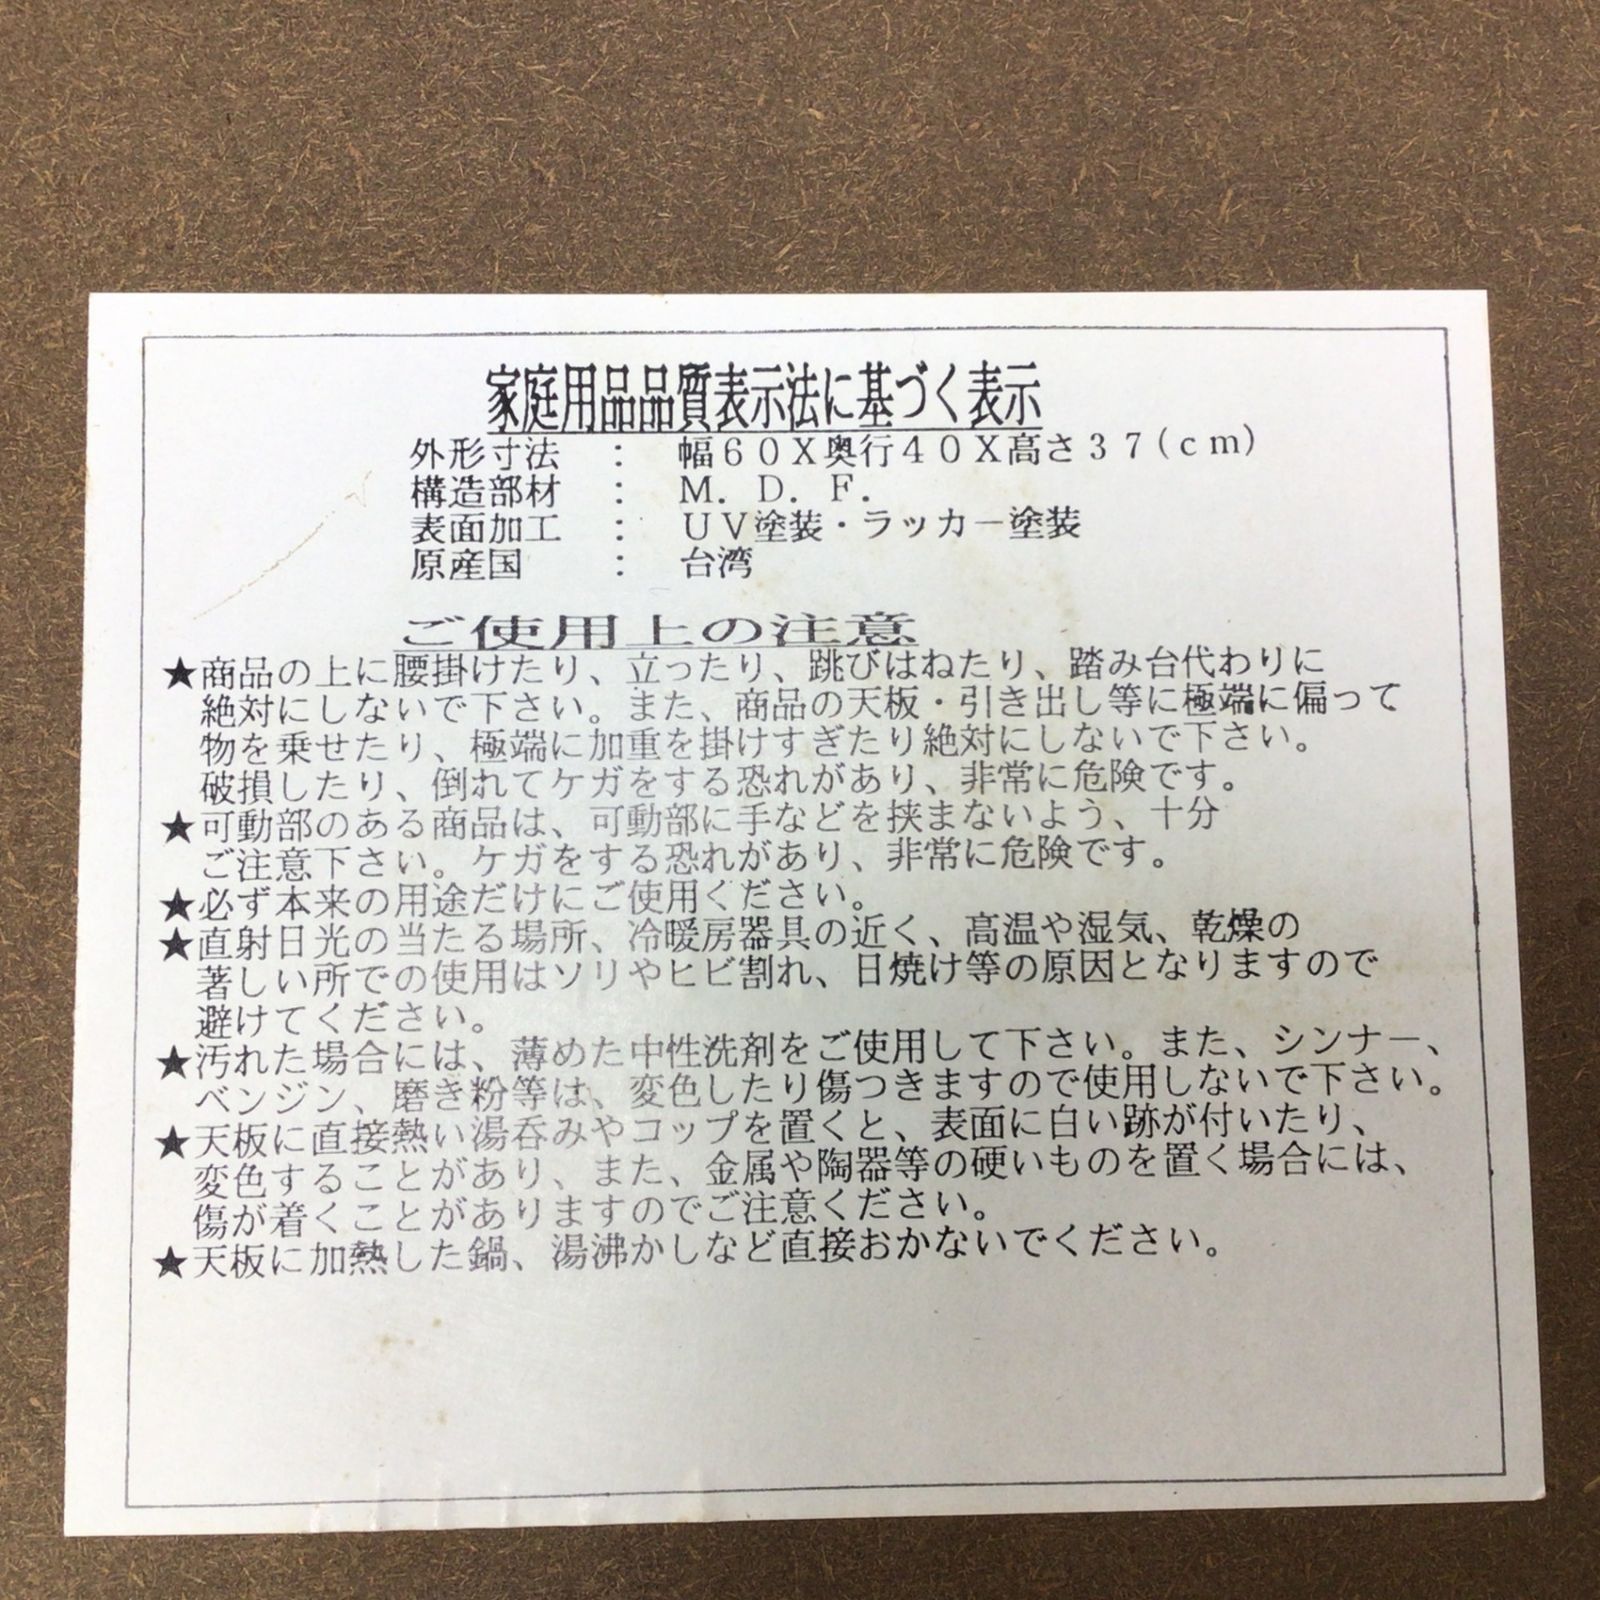 家庭用品品質表示法に基づく表示
外形寸法 : 幅60X奥行40X高さ37(cm)
構造部材 : M.D.F.
表面加工 : UV塗装・ラッカー塗装
原産国 : 台湾
ご使用上の注意
★商品の上に腰掛けたり、立ったり、跳びはねたり、踏み台代わりに
絶対にしないで下さい。また、商品の天板・引き出し等に極端に偏って
物を乗せたり、極端に加重を掛けすぎたり絶対にしないで下さい。
破損したり、倒れてケガをする恐れがあり、非常に危険です。
★可動部のある商品は、可動部に手などを挟まないよう、十分
ご注意下さい。ケガをする恐れがあり、非常に危険です。
★必ず本来の用途だけにご使用ください。
★直射日光の当たる場所、冷暖房器具の近く、高温や湿気、乾燥の
著しい所での使用はソリやヒビ割れ、日焼け等の原因となりますので
避けてください。
★汚れた場合には、薄めた中性洗剤をご使用して下さい。また、シンナー、
ベンジン、磨き粉等は、変色したり傷つきますので使用しないで下さい。
★天板に直接熱い湯呑みやコップを置くと、表面に白い跡が付いたり、
変色することがあり、また、金属や陶器等の硬いものを置く場合には、
傷が着くことがありますのでご注意ください。
★天板に加熱した鍋、湯沸かしなど直接おかないでください。